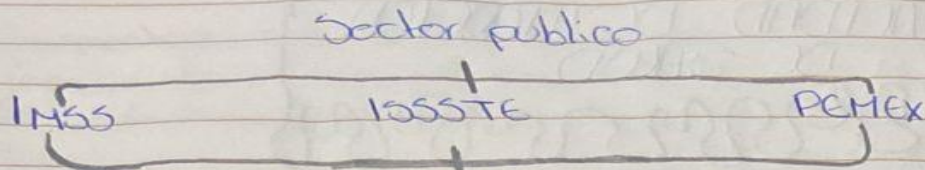 Sector publico
IMSS ISSSTE PEMEX